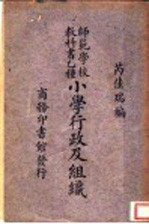 芮佳瑞編
師範學校
教科書乙種
小學行政及組織
商務印書館發行